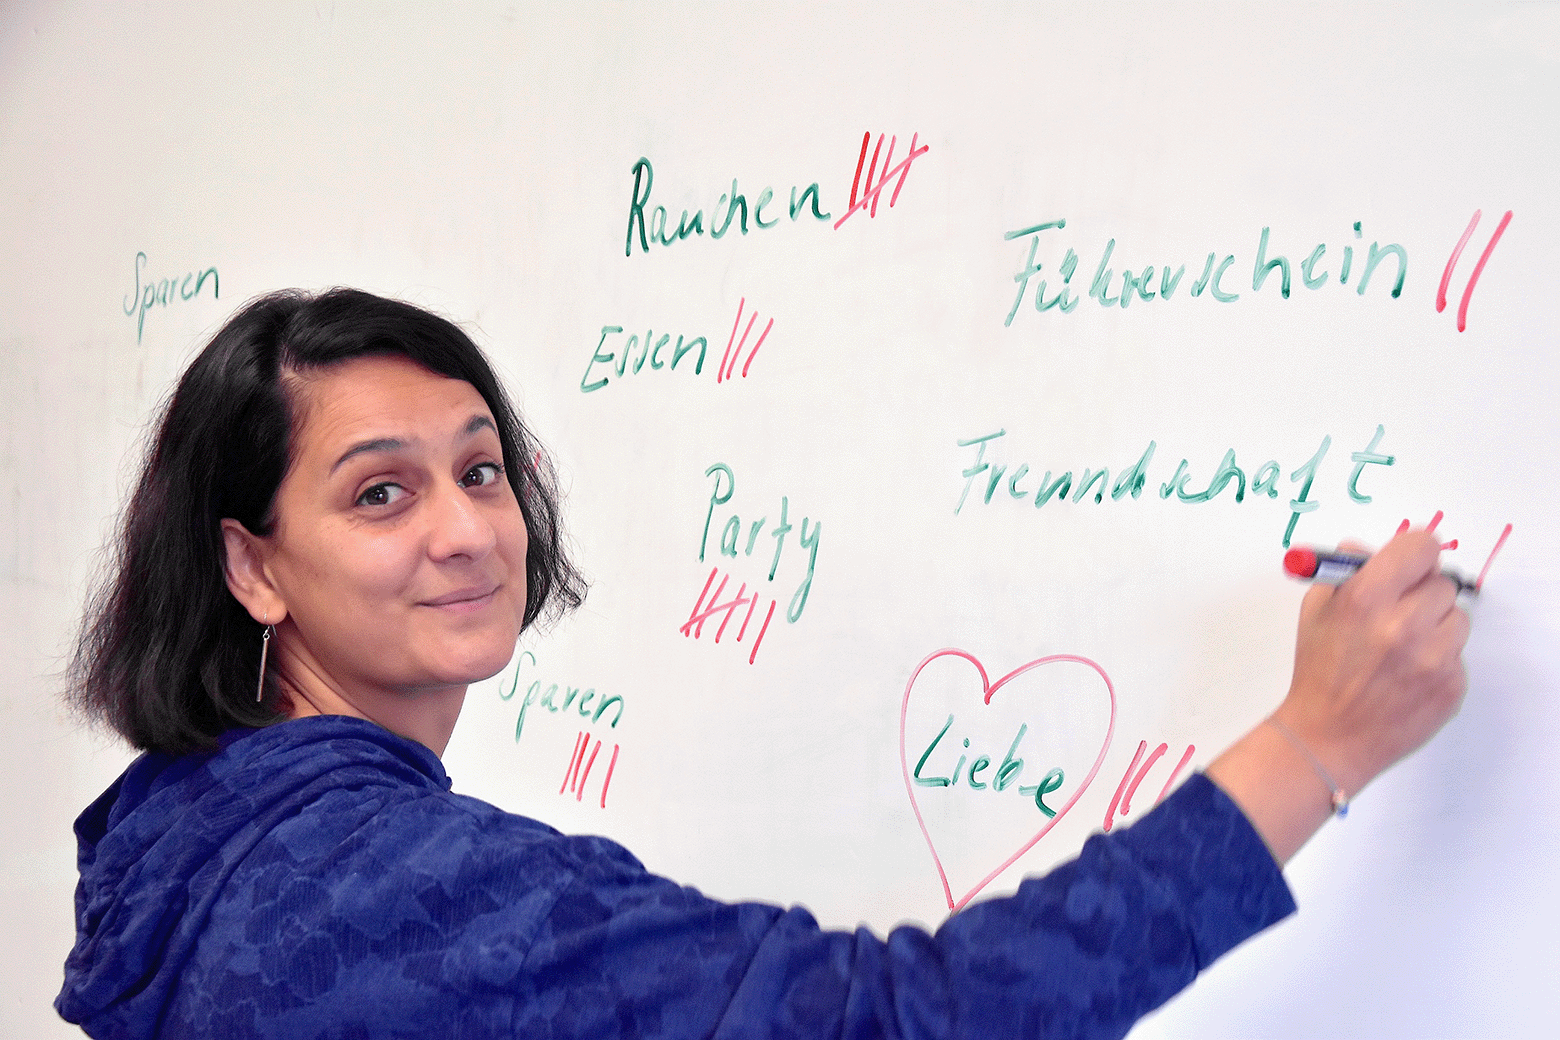 Sparen
Rauchen
Führerschein
Essen
Freundschaft
Party
Sparen
Liebe